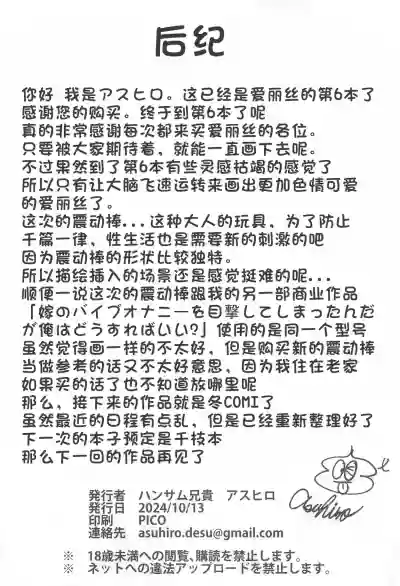 后纪
你好 我是アスヒロ。这已经是爱丽丝的第6本了
感谢您的购买。终于到第6本了呢
真的非常感谢每次都来买爱丽丝的各位。
只要被大家期待着，就能一直画下去呢。
不过果然到了第6本有些灵感枯竭的感觉了
所以只有让大脑飞速运转来画出更加色情可爱
的爱丽丝了。
这次的震动棒...这种大人的玩具，为了防止
千篇一律，性生活也是需要新的刺激的吧
因为震动棒的形状比较独特。
所以描绘插入的场景还是感觉挺难的呢...
顺便一说这次的震动棒跟我的另一部商业作品
「嫁のバイブオナニーを目撃してしまったんだ
が俺はどうすればいい?」使用的是同一个型号
虽然觉得画一样的不太好，但是购买新的震动棒
当做参考的话又不太好意思，因为我住在老家
如果买的话了也不知道放哪里呢
那么，接下来的作品就是冬COMI了
虽然最近的日程有点乱，但是已经重新整理好了
下一次的本子预定是千技本
那么下一回的作品再见了
Asuhiro
発行者 ハンサム兄貴 アスヒロ
発行日 2024/10/13
印刷 PICO
連絡先 asuhiro.desu@gmail.com
※ 18歳未満への閲覧、購読を禁止します。
※ ネットへの違法アップロードを禁止します。